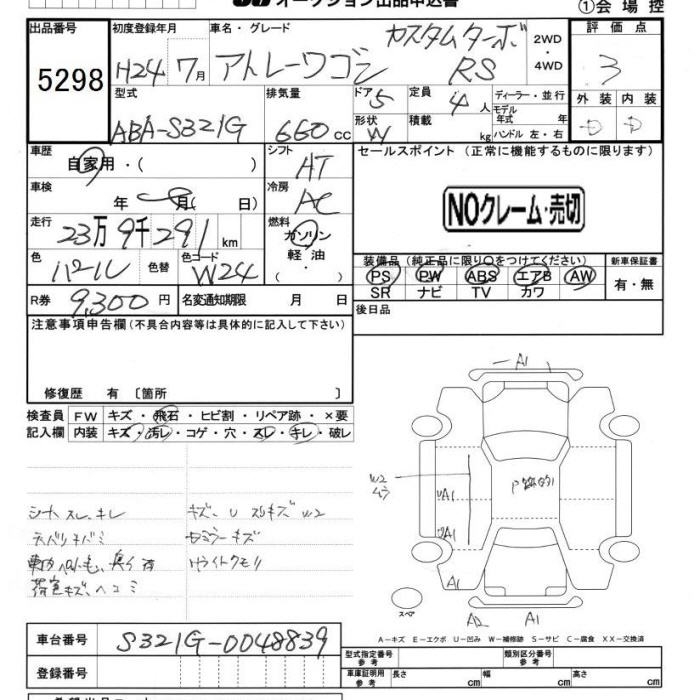 オークション出品申込書
①会場控
出品番号 初度登録年月 車名・グレード 評価点
5298 H24 7月 アトレーワゴン カスタムターボRS 2WD・4WD 3
型式 排気量 ドア 定員 ディーラー・並行 外装 内装
ABA-S321G 660cc 5 4人 モデル年式 年 D D
形状 積載 kg ハンドル 左・右
W
車歴 シフト セールスポイント（正常に機能するものに限ります）
自家用・( ) AT
車検 冷房
年 月( 日) AC
NOクレーム・売切
走行 燃料
23万9千291km ガソリン・軽油・( )
色 色替 色コード 装備品（純正品に限り○をつけてください） 新車保証書
パール W24 PS PW ABS エアB AW 有・無
SR ナビ TV カワ
R券 9,300円 名変通知期限 月 日 後日品
注意事項申告欄（不具合内容等は具体的に記入して下さい）
修復歴 有〔箇所 〕
検査員 FW キズ・飛石・ヒビ割・リペア跡・×要
記入欄 内装 キズ・汚レ・コゲ・穴・スレ・キレ・破レ
A1
W2 ムラ
UA1
UA1
A1
A1
スペア
シート スレ、キレ キズ、U スリキズ W2
ライトクモリ
荷室キズ、ヘコミ
A-キズ E-エクボ U-凹み W-補修跡 S-サビ C-腐食 XX-交換済
車台番号 S321G-0048839
型式指定番号 参考 類別区分番号 参考
登録番号 車庫証明用 参考 長さ cm 幅 cm 高さ cm